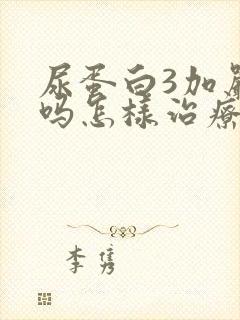 尿蛋白3加严
吗怎样治疗
李隽